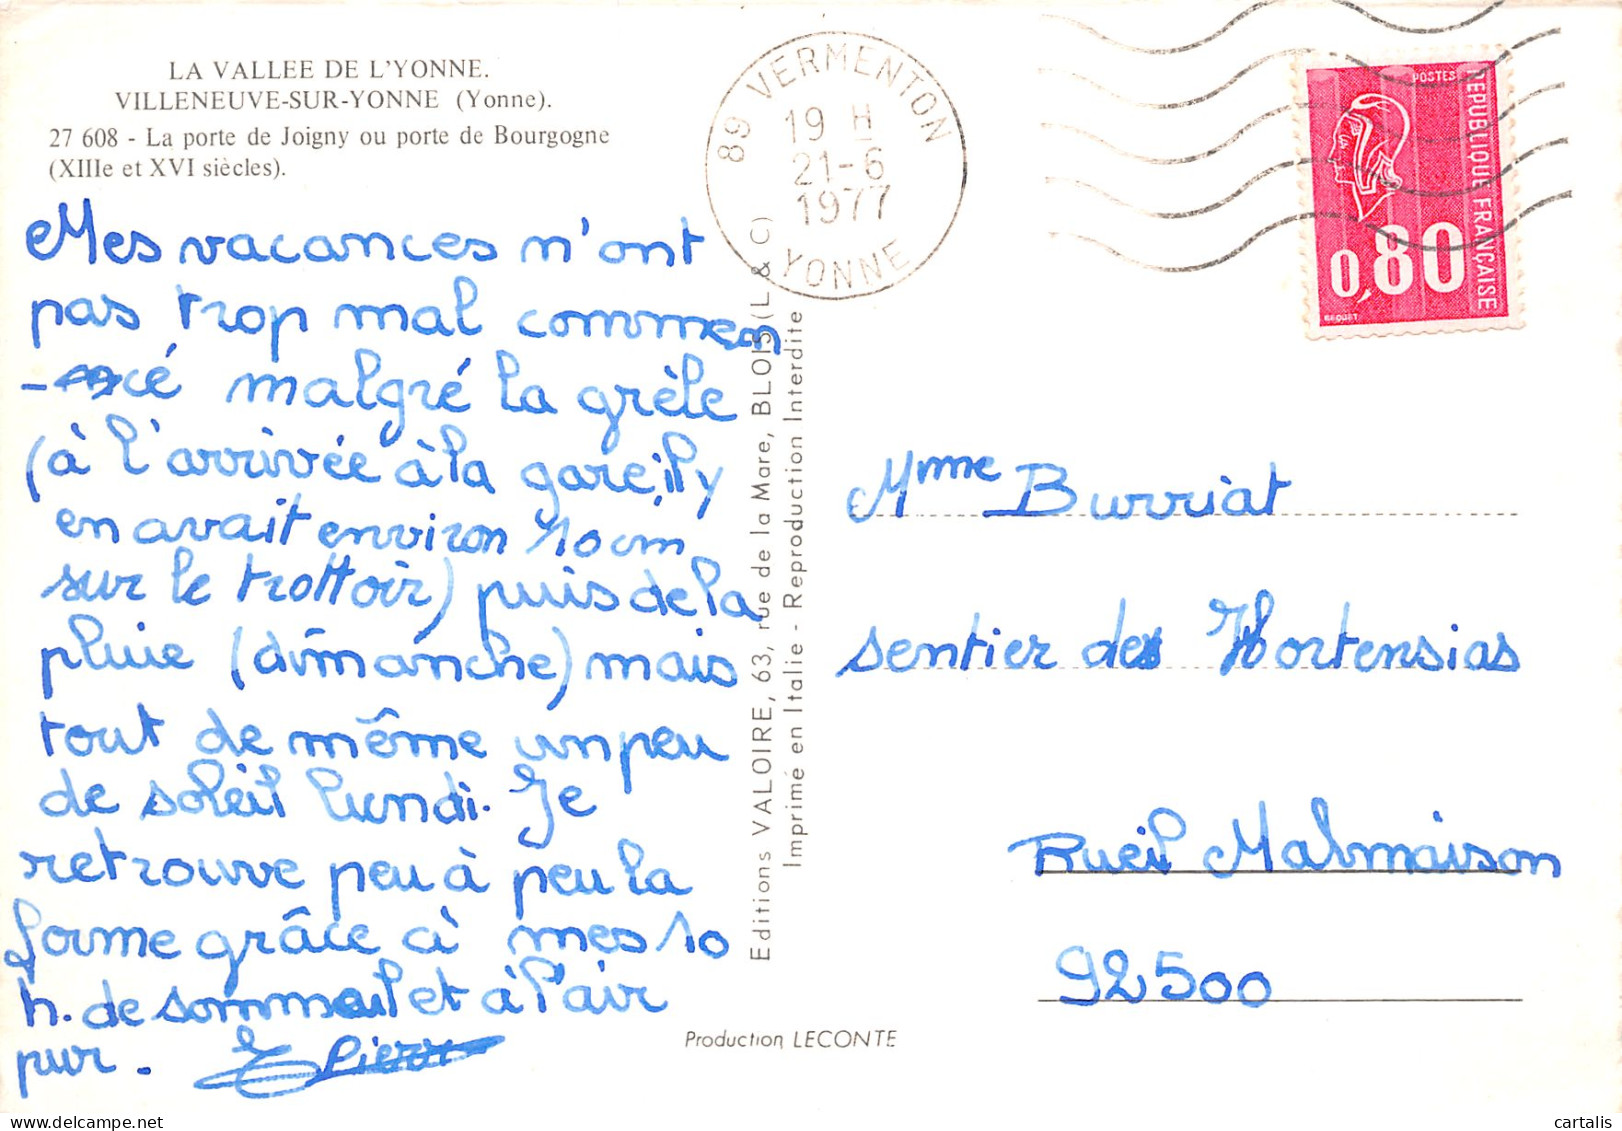 LA VALLEE DE L'YONNE.
VILLENEUVE-SUR-YONNE (Yonne).
27 608 - La porte de Joigny ou porte de Bourgogne
(XIIIe et XVI siècles).
Mes vacances n'ont
pas trop mal commen
-cé malgré la grèle
(à l'arrivée à la gare, il y
en avait environ 10 cm
sur le trottoir) puis de la
pluie (dimanche) mais
tout de même un peu
de soleil lundi. Je
retrouve peu à peu la
forme grâce à mes 10
h. de sommeil et à l'air
pur.
Pierre
Editions VALOIRE, 63, rue de la Mare, BLOIS (L & C)
Imprimé en Italie - Reproduction Interdite
Production LECONTE
89 VERMENTON
19 H
21-6
1977
YONNE
POSTES
REPUBLIQUE FRANÇAISE
0,80
BEQUET
Mme Burriat
sentier des Hortensias
Rueil Malmaison
92500
cartalis
delcampe.net